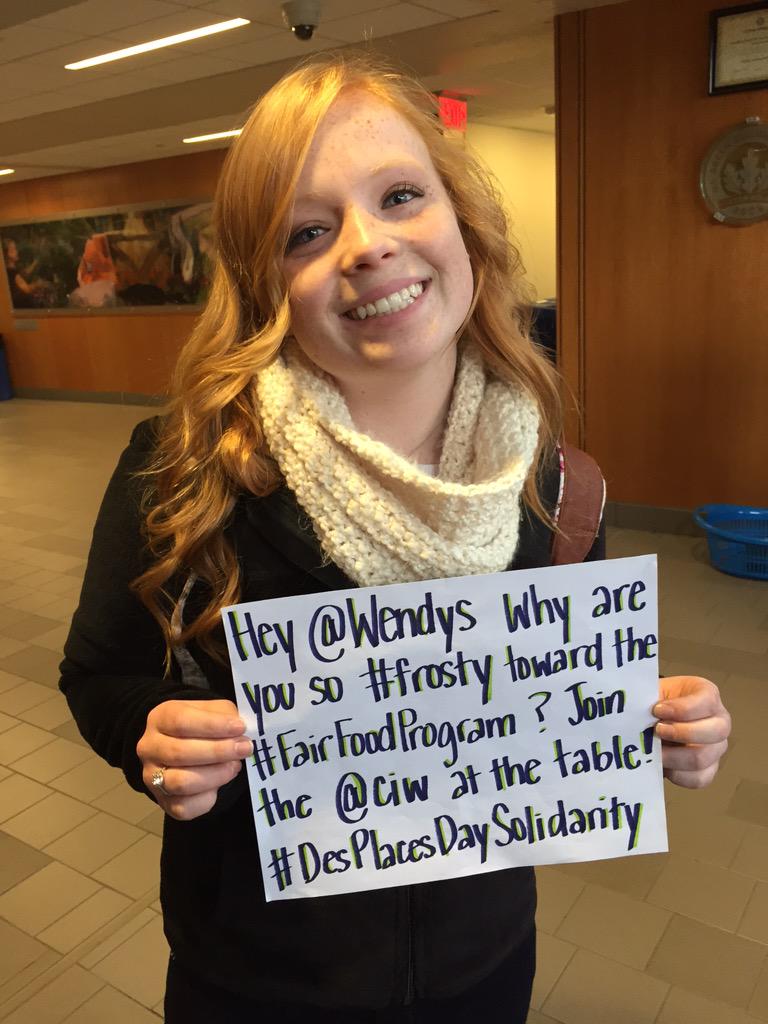 Hey @Wendys Why are
you so #frosty toward the
#FairFoodProgram? Join
the @ciw at the table!
#DesPlacesDaySolidarity